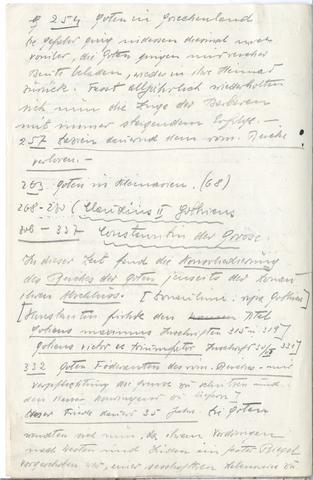 254 Goten in Griechenland
die Gefahr ging indessen diesmal noch
vorüber, die Goten gingen mit reicher
Beute beladen, wieder in ihre Heimat
zurück. Fast alljährlich wiederholten
sich nun die Züge der Barbaren
mit immer steigendem Erfolge. –
257 Dazien dem röm. Reiche
verloren. –
263 Goten in (68)
268-270 (Claudius II Gothicus
306 – 337 Constantin der Grosse.
In dieser Zeit fand die Konsolidierung
des Reiches der Goten jenseits der Donau
ihren Abschluss. [
[Constantin führte den Titel
Gothicus maximus Inschriften 315 u. 319]
gothicus victor ac triumfator Inschrift 331]
332 Goten Foederaten des röm. Reiches – mit
Verpflichtung die Grenze zu schützen und
den Kontingent zu liefern]
Dieser Friede dauert 35 Jahre. Die Goten
wandten sich nun, da ihrem Vordringen
nach Westen und Süden ein fester Riegel
vorgeschoben war, einer sesshafteren Lebensweise zu